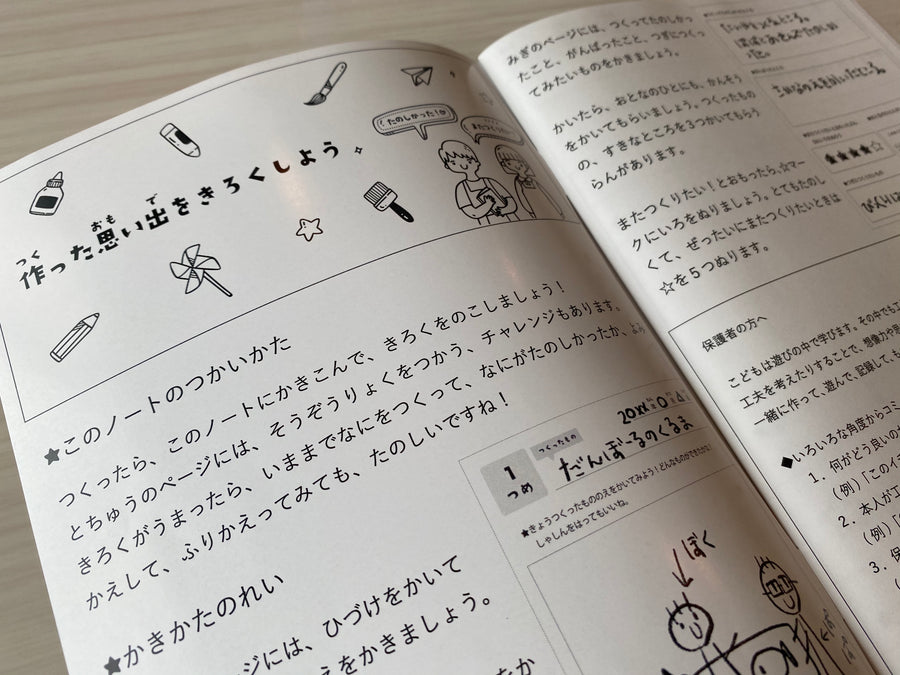 たのしかった！
またつくりたい
つく おも で
作った思い出をきろくしよう
★このノートのつかいかた
つくったら、このノートにかきこんで、きろくをのこしましょう！
とちゅうのページには、そうぞうりょくをつかう、チャレンジもあります。
きろくがうまったら、いままでなにをつくって、なにがたのしかったか、よみ
かえして、ふりかえってみても、たのしいですね！
★かきかたのれい
ージには、ひづけをかいて
えをかきましょう。
をか
20XX
1
つめ
つくったもの
だんぼーるのくるま
★きょうつくったもののえをかいてみよう！どんなものができたかな？
しゃしんをはってもいいね。
ぼく
みぎのページには、つくってたのしかっ
たこと、がんばったこと、つぎにつくっ
てみたいものをかきましょう。
かいたら、おとなのひとにも、かんそう
をかいてもらいましょう。つくったもの
の、すきなところを3つかいてもらう
らんがあります。
またつくりたい！とおもったら、☆マー
クにいろをぬりましょう。とてもたのし
くて、ぜったいにまたつくりたいときは
☆を5つぬります。
★★★★☆
保護者の方へ
こどもは遊びの中で学びます。その中でも工
工夫を考えたりすることで、想像力や思
一緒に作って、遊んで、記録して、も
◆いろいろな角度からコミ
1．何がどう良いのか
（例）「このイ
2．本人が工
（例）「
3．保